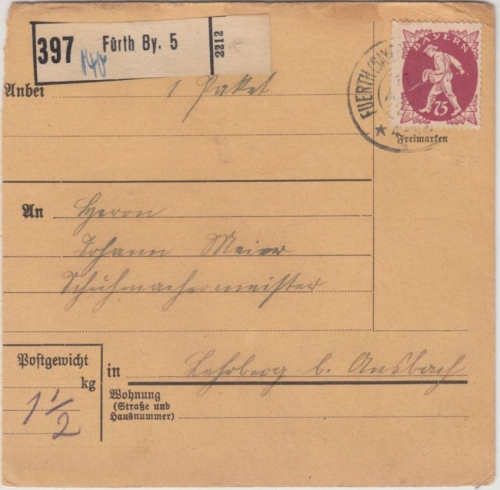 397 Fürth By. 5 2212
BAYERN
75
FUERTH (BAY
Freimarken
Anbei 1 Paket
An Herrn
Johann Meier
Schuhmachermeister
Postgewicht
kg
1 1/2
in Lehrberg b. Ansbach
Wohnung
(Straße und
Hausnummer)